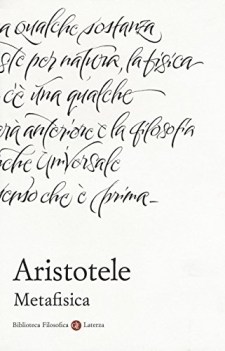 a qualche sostanza
ste per natura, la fisica
c'è una qualche
rà anteriore e la filosofia
nche universale
senso che è prima_
Aristotele
Metafisica
Biblioteca Filosofica Laterza